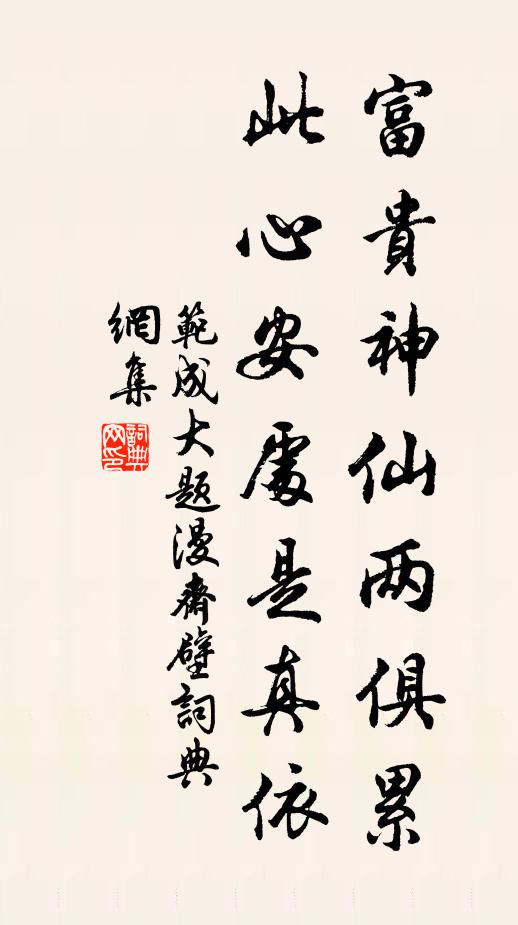 富貴神仙两俱累
此心安處是真依
範成大题漫齋壁詞典
網集
詞典網印